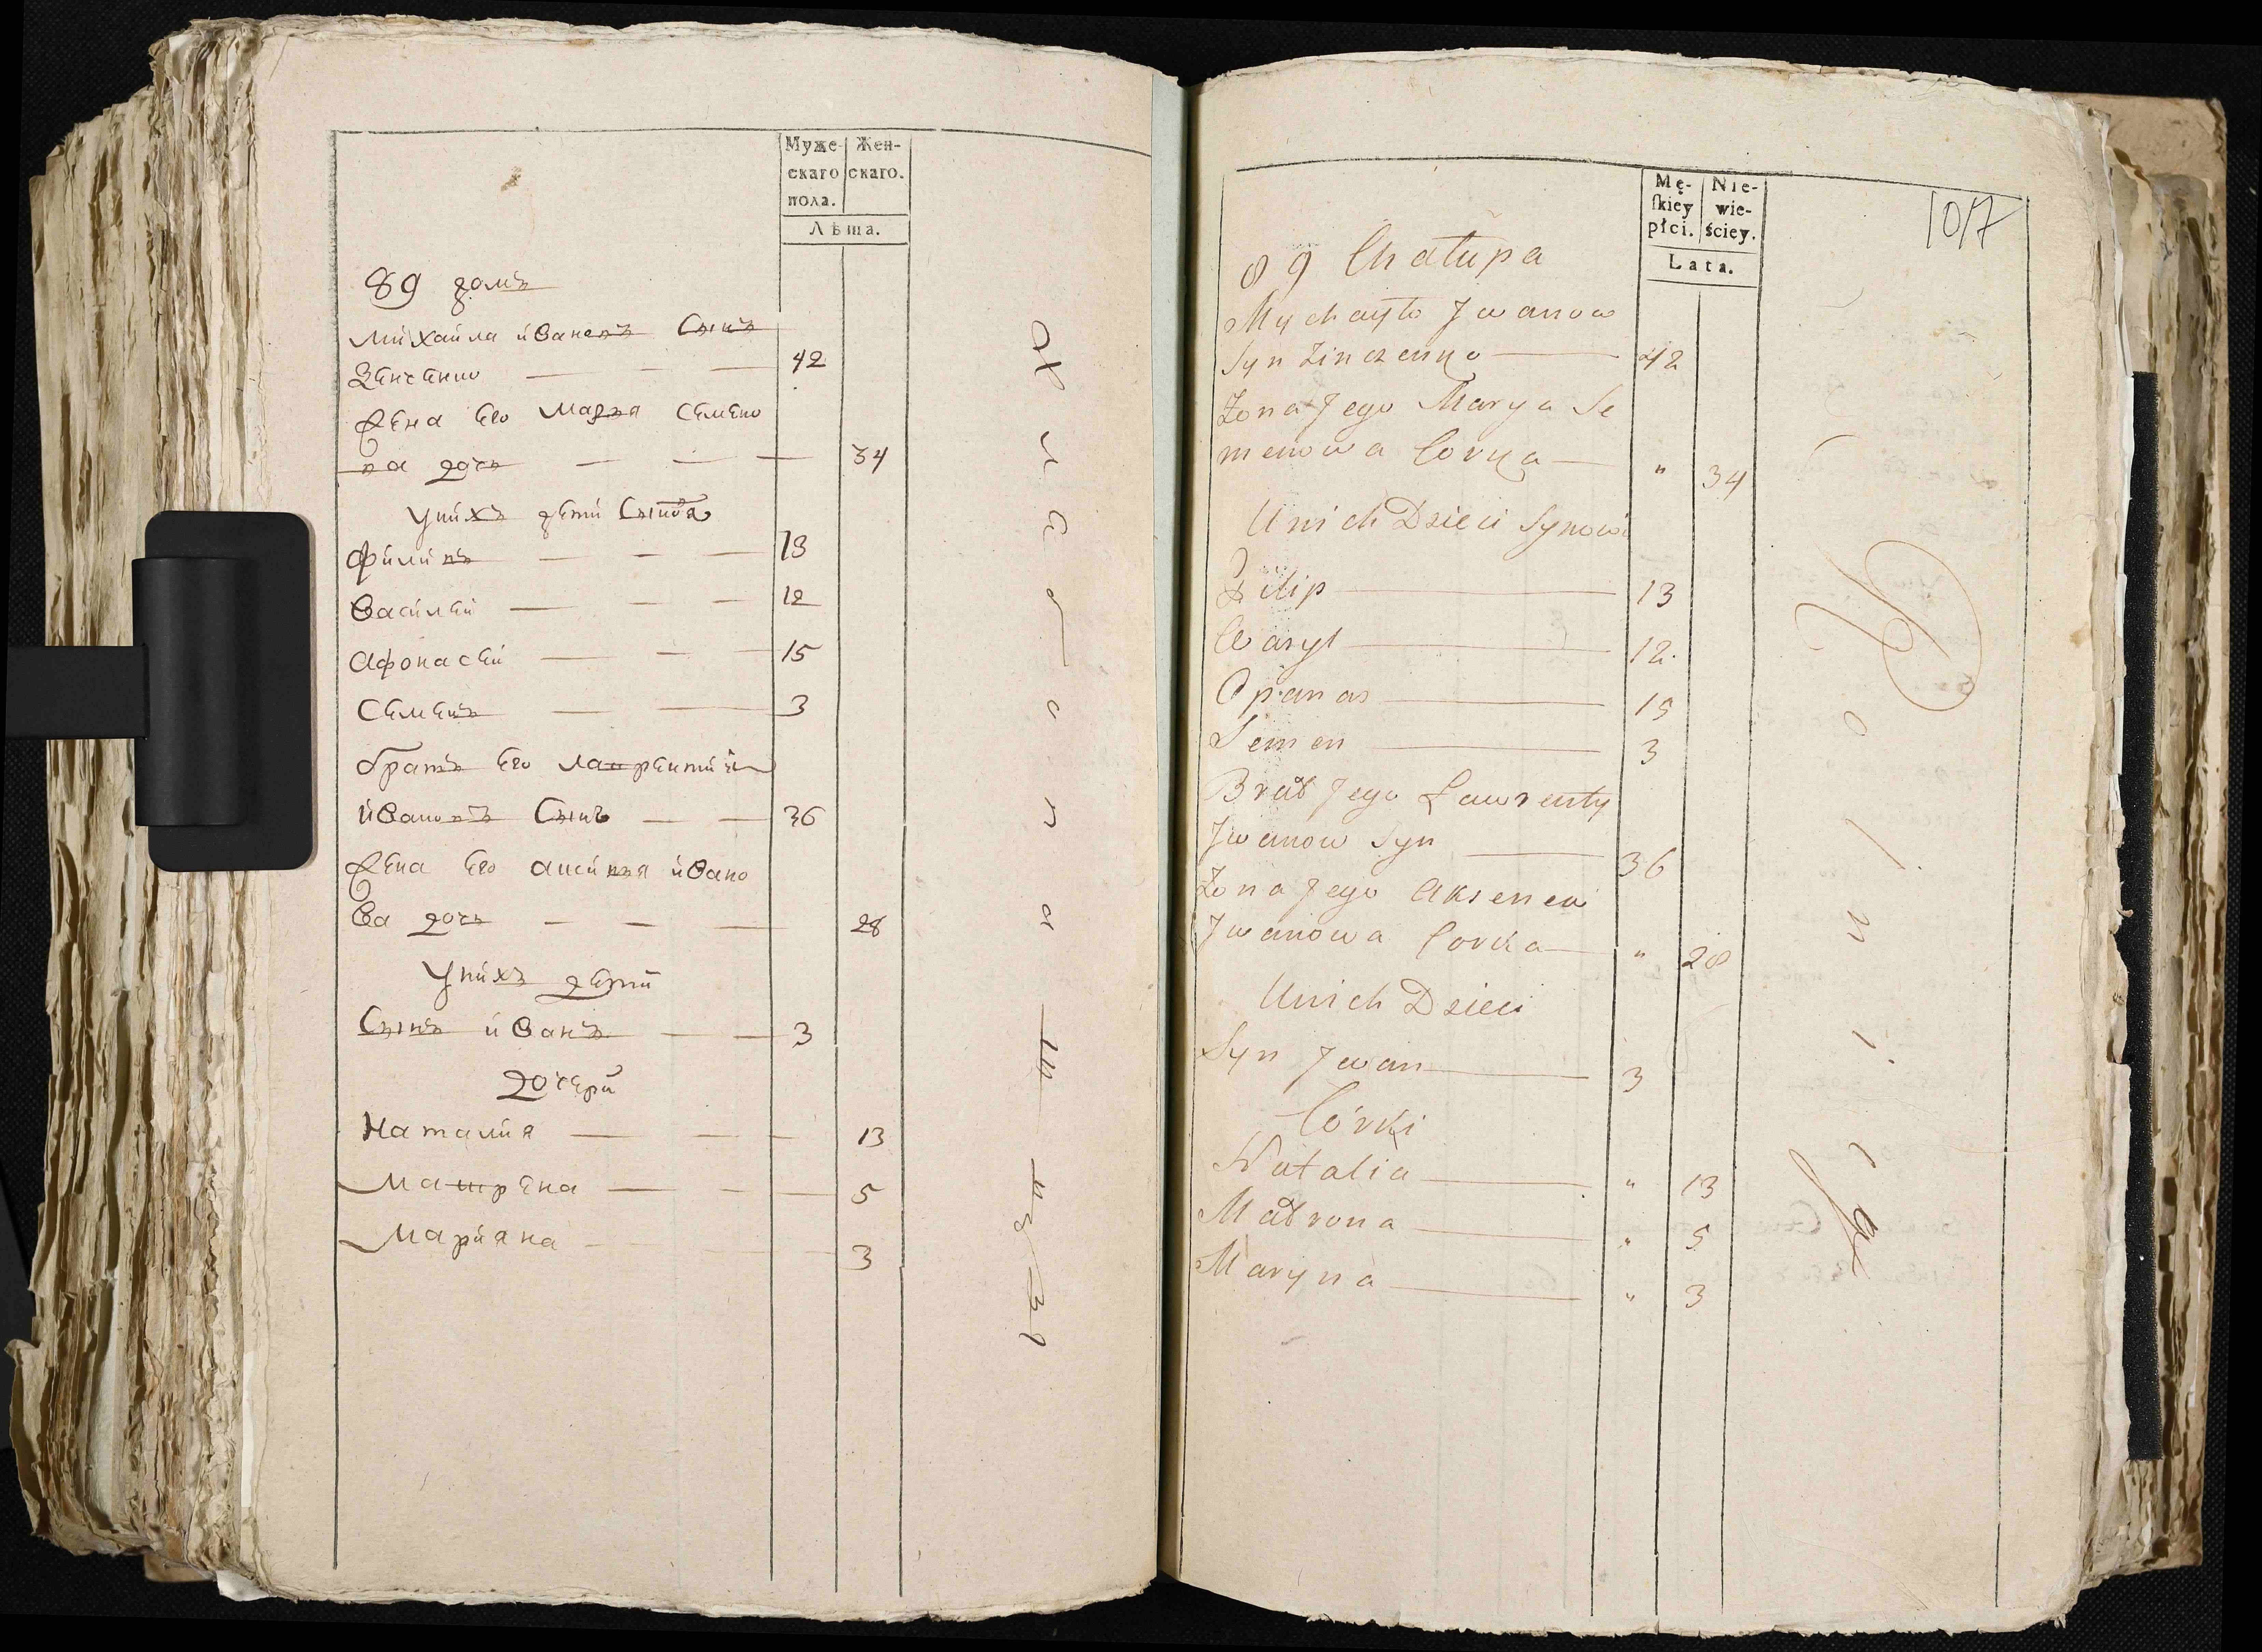 Муже-
скаго
пола.
Жен-
скаго.
Лѣта.
89 домъ
Михайла ивановъ Сынъ
Зенченко 42
Жена Его Марья Семено
ва дочь 34
У нихъ дети Сыновя
Филипъ 13
Василей 12
Афонасей 15
Семенъ 3
братъ Его лаврентий
ивановъ Сынъ 36
Жена Его аксинья ивано
ва дочь 28
У нихъ дети
Сынъ иванъ 3
дочери
Наталия 13
Матрена 5
Марияна 3
Mę-
skiey
płci.
Nie-
wie-
ściey.
Lata.
1017
89 Chałupa
Mychayło Jwanow
Syn Zinczenko 42
Żona Jego Marya Se
menowa Corka " 34
U nich Dzieci Synowi
Filip 13
Wasyl 12.
Opanas 15
Semen 3
Brat Jego Ławrenty
Jwanow Syn 36
Żona Jego Aksenew
Jwanowa Corka " 28
U nich Dzieci
Syn Jwan 3
Córki
Natalia " 13
Matrona " 5
Maryna " 3